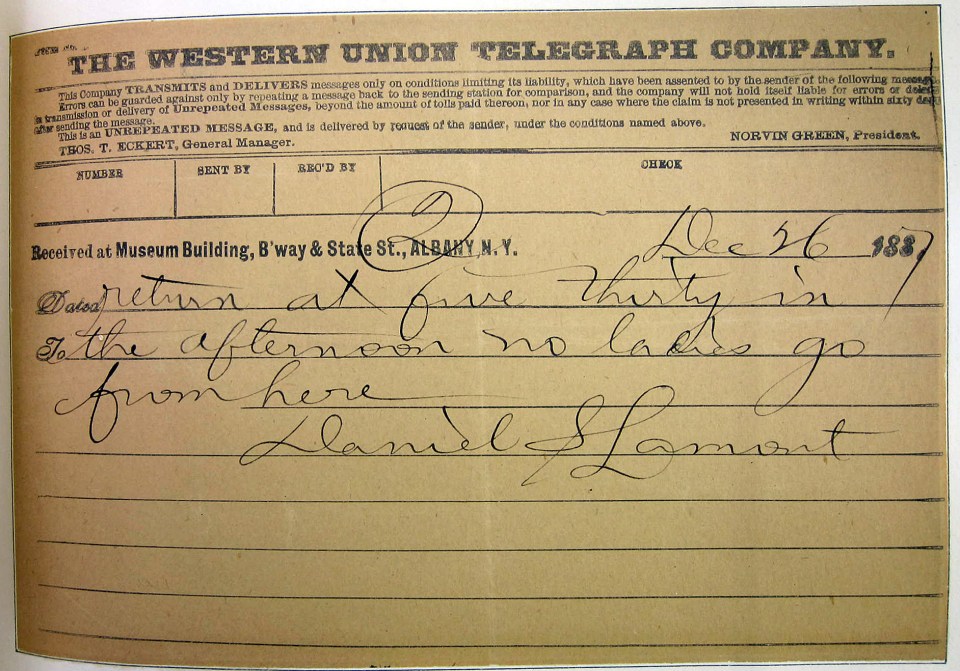 THE WESTERN UNION TELEGRAPH COMPANY.
This Company TRANSMITS and DELIVERS messages only on conditions limiting its liability, which have been assented to by the sender of the following message
Errors can be guarded against only by repeating a message back to the sending station for comparison, and the company will not hold itself liable for errors or
in transmission or delivery of Unrepeated Messages, beyond the amount of tolls paid thereon, nor in any case where the claim is not presented in writing within sixty
after sending the message.
This is an UNREPEATED MESSAGE, and is delivered by request of the sender, under the conditions named above.
THOS. T. ECKERT, General Manager. NORVIN GREEN, President.
NUMBER SENT BY REC'D BY CHECK
2
Received at Museum Building, B'way & State St., ALBANY, N. Y. Dec 26 1887
Dated return at five thirty in
To the afternoon no ladies go
from here
Daniel S Lamont